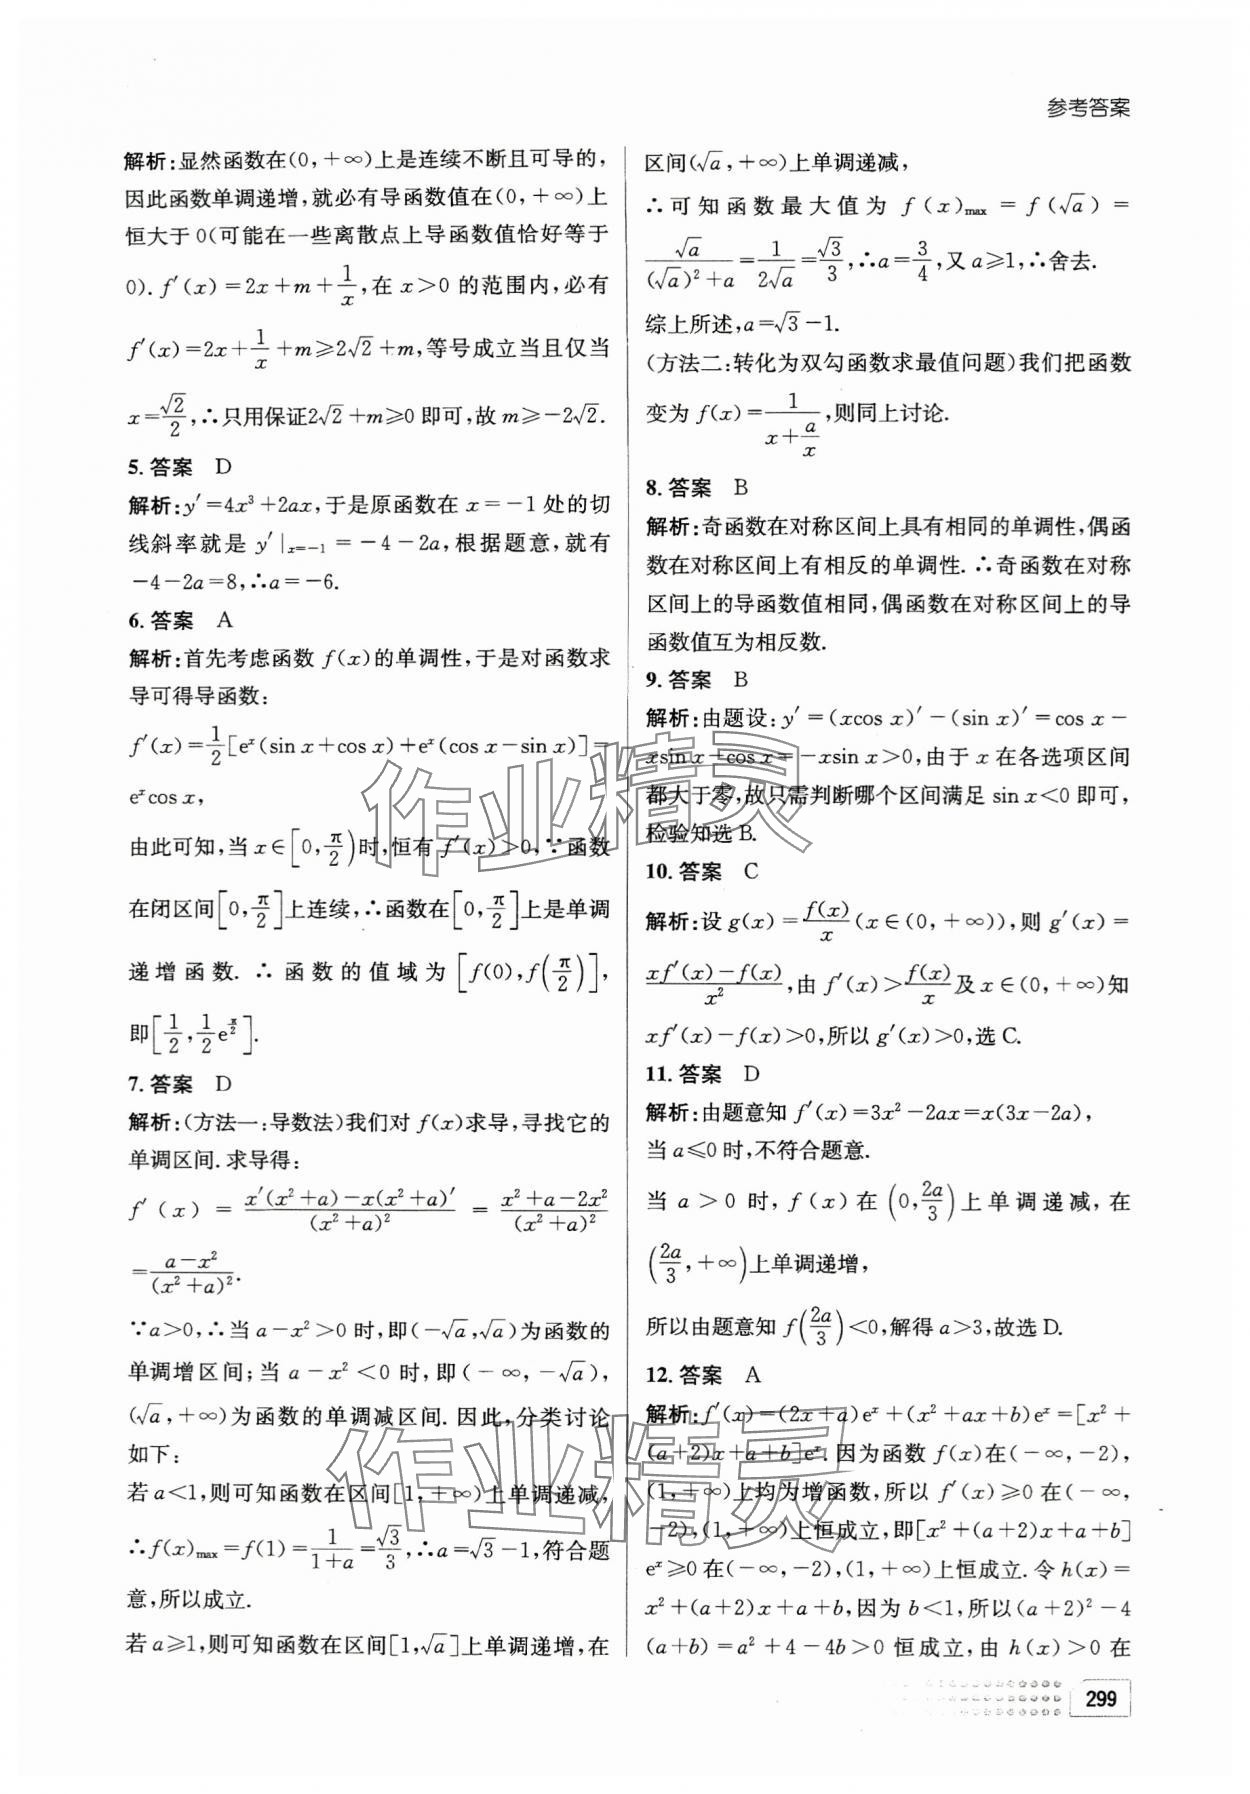 参考答案
解析:显然函数在(0,+∞)上是连续不断且可导的,
因此函数单调递增,就必有导函数值在(0,+∞)上
恒大于0(可能在一些离散点上导函数值恰好等于
0). f′(x)=2x+m+1/x,在 x>0 的范围内,必有
f′(x)=2x+1/x+m≥2√2+m,等号成立当且仅当
x=√2/2,∴只用保证2√2+m≥0即可,故 m≥-2√2.
5. 答案 D
解析:y′=4x³+2ax,于是原函数在 x=-1 处的切
线斜率就是 y′|x=-1=-4-2a,根据题意,就有
-4-2a=8,∴a=-6.
6. 答案 A
解析:首先考虑函数 f(x)的单调性,于是对函数求
导可得导函数:
f′(x)=1/2[eˣ(sin x+cos x)+eˣ(cos x-sin x)]=
eˣcos x,
由此可知,当 x∈[0,π/2)时,恒有 f′(x)>0,∵函数
在闭区间[0,π/2]上连续,∴函数在[0,π/2]上是单调
递增函数. ∴函数的值域为[f(0),f(π/2)],
即[1/2,1/2e^(π/2)].
7. 答案 D
解析:(方法一:导数法)我们对 f(x)求导,寻找它的
单调区间. 求导得:
f′(x)=(x′(x²+a)-x(x²+a)′)/(x²+a)²=(x²+a-2x²)/(x²+a)²
=(a-x²)/(x²+a)².
∵a>0,∴当 a-x²>0 时,即(-√a,√a)为函数的
单调增区间;当 a-x²<0 时,即(-∞,-√a),
(√a,+∞)为函数的单调减区间. 因此,分类讨论
如下:
若 a<1,则可知函数在区间[1,+∞)上单调递减,
∴f(x)max=f(1)=1/(1+a)=√3/3,∴a=√3-1,符合题
意,所以成立.
若 a≥1,则可知函数在区间[1,√a]上单调递增,在
区间(√a,+∞)上单调递减,
∴可知函数最大值为 f(x)max=f(√a)=
√a/((√a)²+a)=1/(2√a)=√3/3,∴a=3/4,又 a≥1,∴舍去.
综上所述,a=√3-1.
(方法二:转化为双勾函数求最值问题)我们把函数
变为 f(x)=1/(x+a/x),则同上讨论.
8. 答案 B
解析:奇函数在对称区间上具有相同的单调性,偶函
数在对称区间上有相反的单调性. ∴奇函数在对称
区间上的导函数值相同,偶函数在对称区间上的导
函数值互为相反数.
9. 答案 B
解析:由题设:y′=(xcos x)′-(sin x)′=cos x-
xsin x-cos x=-xsin x>0,由于 x 在各选项区间
都大于零,故只需判断哪个区间满足 sin x<0 即可,
检验知选B.
10. 答案 C
解析:设 g(x)=f(x)/x(x∈(0,+∞)),则 g′(x)=
(xf′(x)-f(x))/x²,由 f′(x)>f(x)/x及 x∈(0,+∞)知
xf′(x)-f(x)>0,所以 g′(x)>0,选 C.
11. 答案 D
解析:由题意知 f′(x)=3x²-2ax=x(3x-2a),
当 a≤0 时,不符合题意.
当 a>0 时,f(x)在(0,2a/3)上单调递减,在
(2a/3,+∞)上单调递增,
所以由题意知 f(2a/3)<0,解得 a>3,故选 D.
12. 答案 A
解析:f′(x)=(2x+a)eˣ+(x²+ax+b)eˣ=[x²+
(a+2)x+a+b]eˣ. 因为函数 f(x)在(-∞,-2),
(1,+∞)上均为增函数,所以 f′(x)≥0 在(-∞,
-2),(1,+∞)上恒成立,即[x²+(a+2)x+a+b]
eˣ≥0 在(-∞,-2),(1,+∞)上恒成立. 令 h(x)=
x²+(a+2)x+a+b,因为 b<1,所以(a+2)²-4
(a+b)=a²+4-4b>0 恒成立,由 h(x)>0 在
299
作业精灵
作业精灵